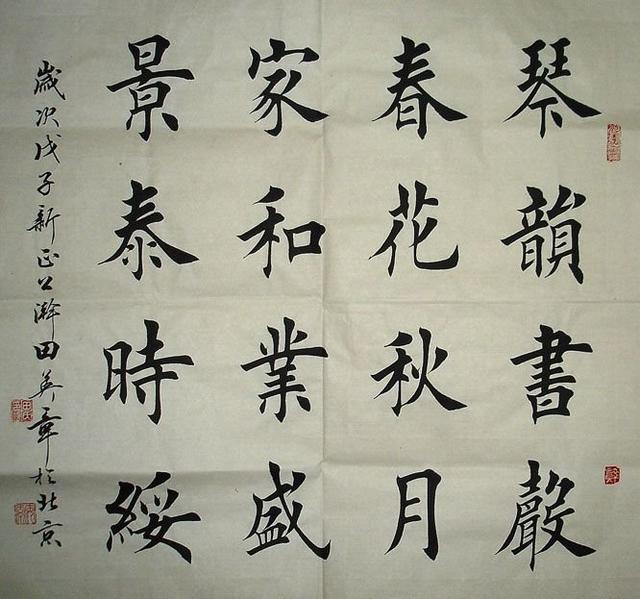 琴韻書聲
春花秋月
家和業盛
景泰時綏
歲次戊子新正公瀚田英章於北京